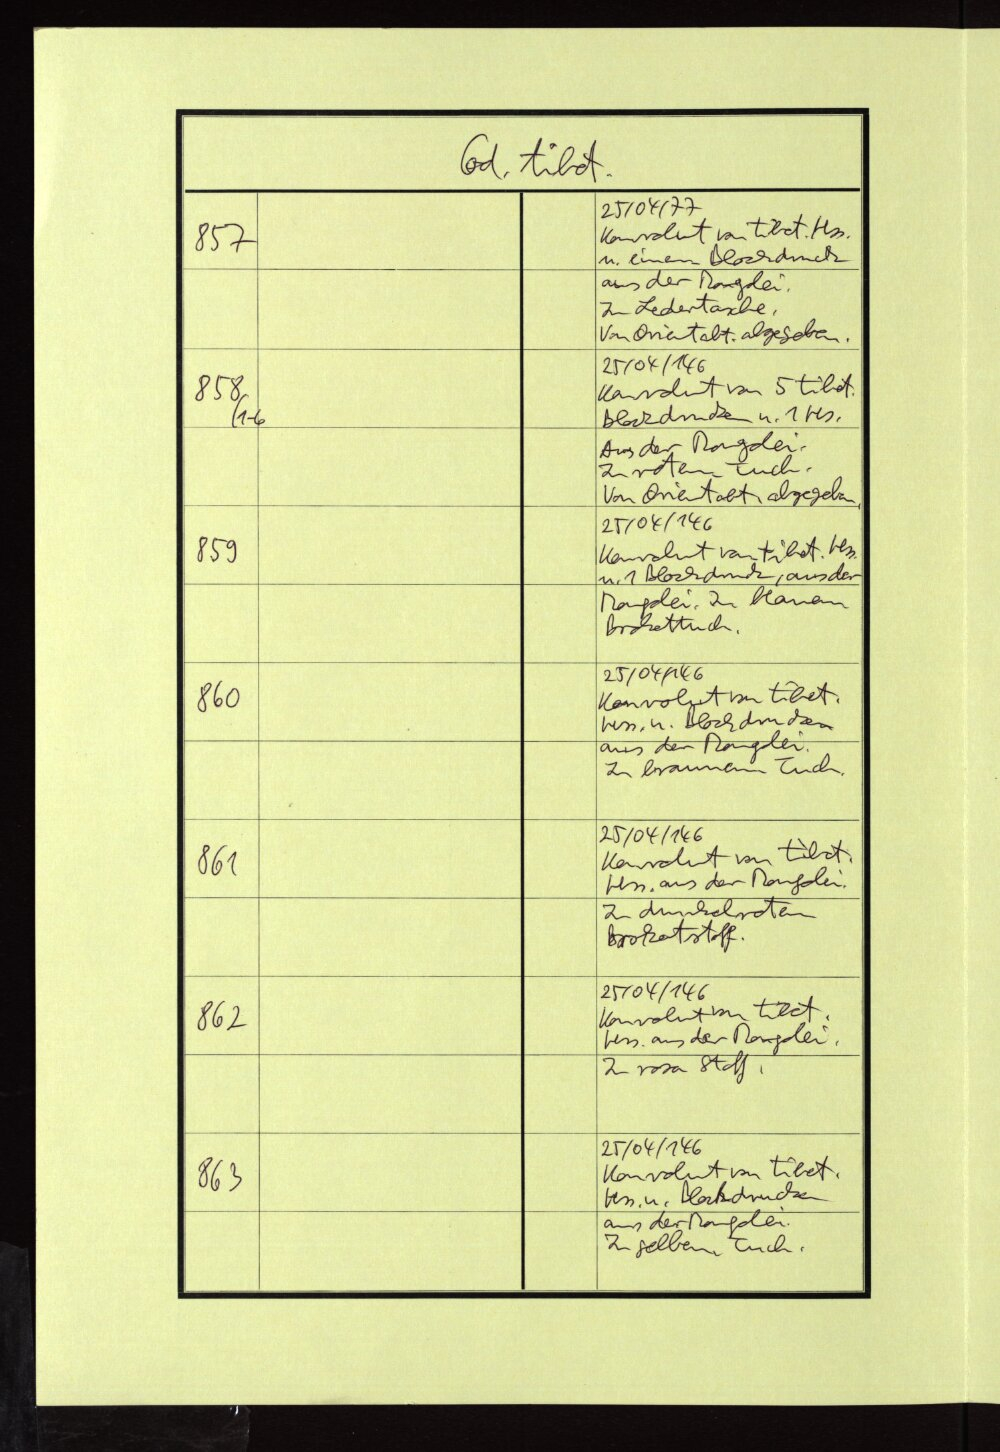 Cod. tibet.
857
25/04/77
Konvolut von tibet. Hss.
u. einem Blockdruck
aus der Mongolei.
In Ledertasche.
Von Orientabt. abgegeben.
858/1-6
25/04/146
Konvolut von 5 tibet.
Blockdrucken u. 1 Hs.
Aus der Mongolei.
In rotem Tuch.
Von Orientabt. abgegeben.
859
25/04/146
Konvolut von tibet. Hss.
u. 1 Blockdruck, aus der
Mongolei. In blauem
Brokattuch.
860
25/04/146
Konvolut von tibet.
Hss. u. Blockdrucken
aus der Mongolei.
In braunem Tuch.
861
25/04/146
Konvolut von tibet.
Hss. aus der Mongolei.
In dunkelrotem
Brokatstoff.
862
25/04/146
Konvolut von tibet.
Hss. aus der Mongolei.
In rosa Stoff.
863
25/04/146
Konvolut von tibet.
Hss. u. Blockdrucken
aus der Mongolei.
In gelbem Tuch.